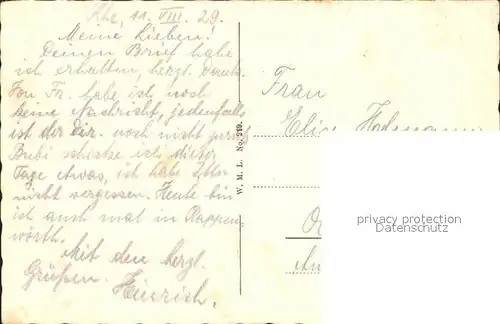 Khe, 11. VIII. 29.
Meine Lieben!
Deinen Brief habe
ich erhalten, herzl. Dank.
Von Fa. habe ich noch
keine Nachricht, jedenfalls
ist der Dir. noch nicht
Bubi schicke ich dieser
Tage etwas, ich habe
nicht vergessen. Heute bin
ich auch mal in Rappen-
wörth.
Mit den herzl.
Grüßen.
Heinrich.
W. M. L. No. 219.
Frau
privacy protection
Datenschutz